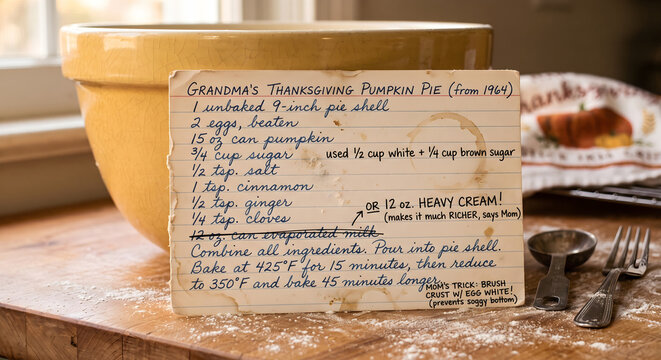 GRANDMA'S THANKSGIVING PUMPKIN PIE (from 1964)
1 unbaked 9-inch pie shell
2 eggs, beaten
15 oz can pumpkin
3/4 cup sugar used 1/2 cup white + 1/4 cup brown sugar
1/2 tsp. salt
1 tsp. cinnamon
1/2 tsp. ginger
OR 12 oz. HEAVY CREAM!
(makes it much RICHER, says Mom)
1/4 tsp. cloves
12 oz. can evaporated milk
Combine all ingredients. Pour into pie shell.
Bake at 425°F for 15 minutes, then reduce
to 350°F and bake 45 minutes longer.
MOM'S TRICK: BRUSH
CRUST W/ EGG WHITE!
(prevents soggy bottom)